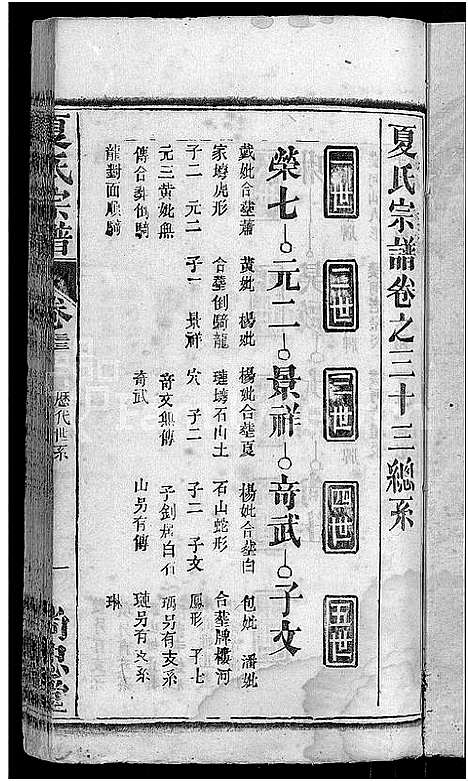 夏氏宗譜卷之三十三總系
一世
二世
三世
四世
五世
榮七
元二
景祥
奇武
子文
戴妣合塟蕭
家塆虎形
子二 元二
元三黃妣無
傳合塟倒騎
龍對面順騎
黃妣 楊妣
合塟倒騎龍
子一 景祥
楊妣合塟袁
璉塆石山土
穴 子二
奇文無傳
奇武
楊妣合塟白
石山蛇形
子二 子文
子劍居白石
山另有傳
包妣 潘妣
合塟牌樓河
鳳形 子七
瑀另有支系
璉另有支系
琳
夏氏宗譜
歷代世系
一